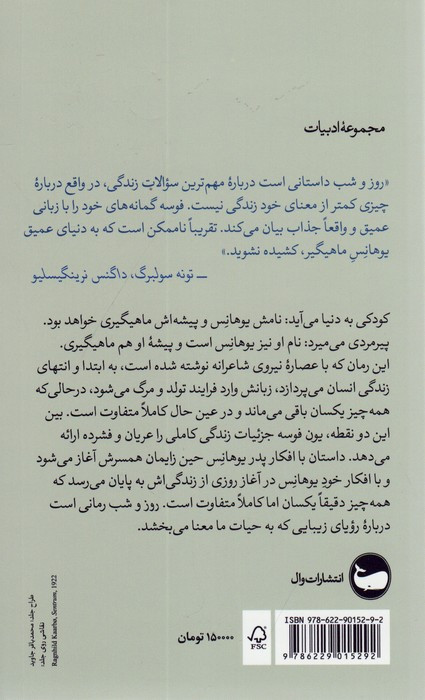 مجموعهٔ ادبیات
«روز و شب داستانی است دربارهٔ مهم‌ترین سؤالات زندگی، در واقع دربارهٔ
چیزی کمتر از معنای خود زندگی نیست. فوسه گمانه‌های خود را با زبانی
عمیق و واقعاً جذاب بیان می‌کند. تقریباً ناممکن است که به دنیای عمیق
یوهانِسِ ماهیگیر، کشیده نشوید.»
— تونه سولبرگ، داگنس نرینگیسلیو
کودکی به دنیا می‌آید: نامش یوهانِس و پیشه‌اش ماهیگیری خواهد بود.
پیرمردی می‌میرد: نام او نیز یوهانِس است و پیشهٔ او هم ماهیگیری.
این رمان که با عصارهٔ نیروی شاعرانه نوشته شده است، به ابتدا و انتهای
زندگی انسان می‌پردازد، زبانش وارد فرایند تولد و مرگ می‌شود، درحالی‌که
همه‌چیز یکسان باقی می‌ماند و در عین حال کاملاً متفاوت است. بین
این دو نقطه، یون فوسه جزئیات زندگی کاملی را عریان و فشرده ارائه
می‌دهد. داستان با افکار پدر یوهانِس حین زایمان همسرش آغاز می‌شود
و با افکار خودِ یوهانِس در آغاز روزی از زندگی‌اش به پایان می‌رسد که
همه‌چیز دقیقاً یکسان اما کاملاً متفاوت است. روز و شب رمانی است
دربارهٔ رؤیای زیبایی که به حیات ما معنا می‌بخشد.
انتشارات وال
طراح جلد: محمدباقر جاوید
نقاشی روی جلد:
Ragnhild Kaarbø, Sentrum, 1922
۱۵۰۰۰۰ تومان
FSC
ISBN 978-622-90152-9-2
9 786229 015292